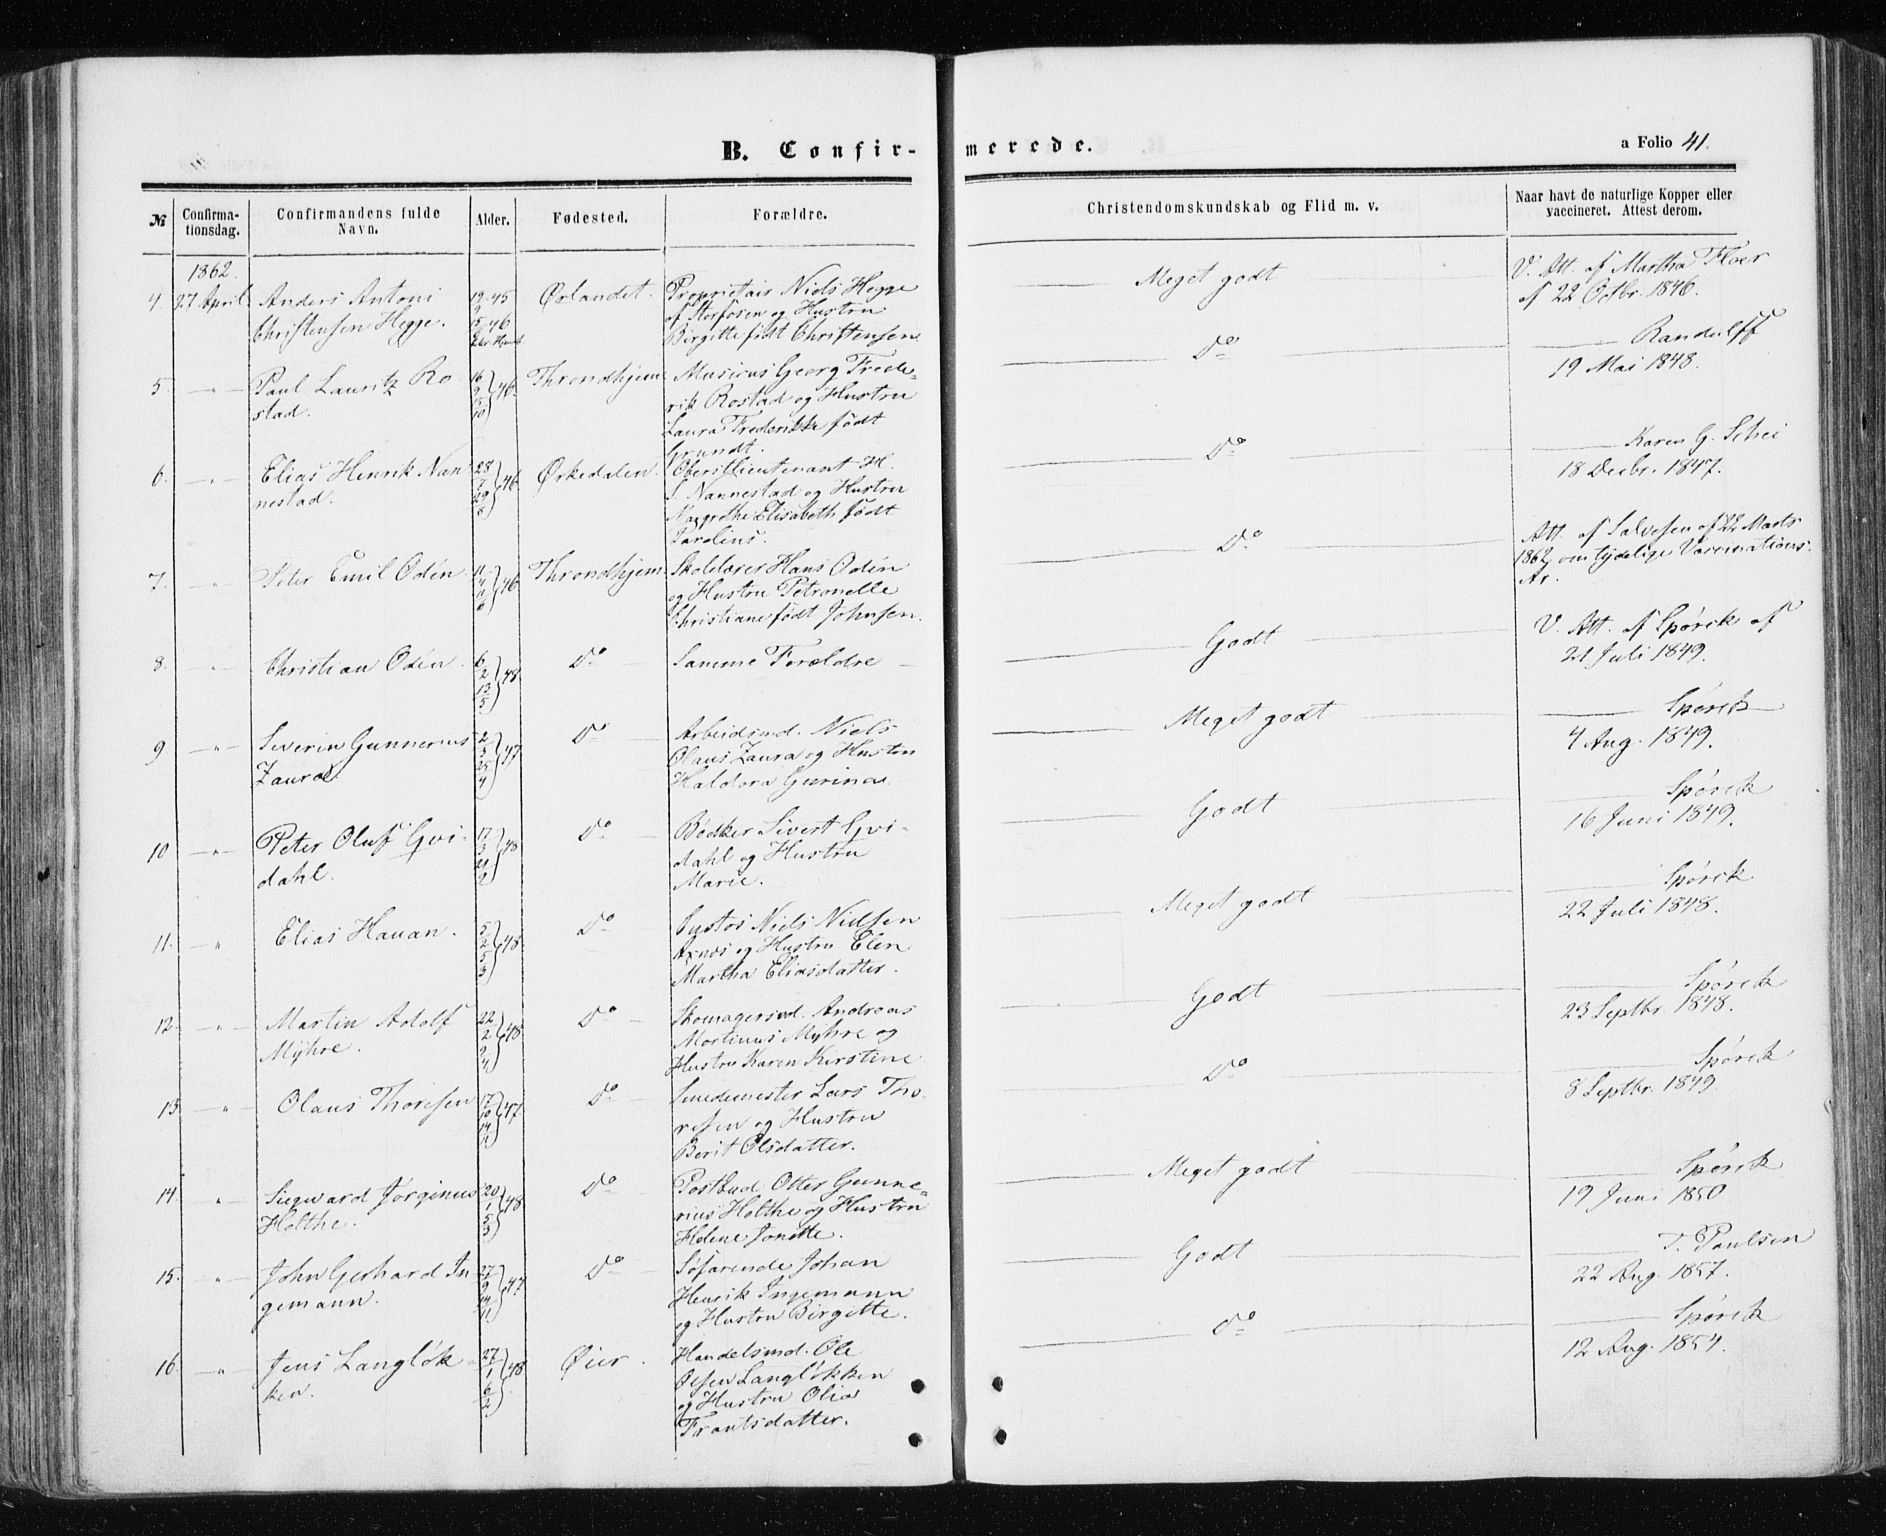 B. Confir-merede.
a Folio 41.
№ Confirma-tionsdag. Confirmandens fulde Navn. Alder. Fødested. Forældre. Christendomskundskab og Flid m. v. Naar havt de naturlige Kopper eller vaccineret. Attest derom.
1862.
4. 27 April. Anders Antoni Ørlandet. Proprietair Niels Hegge Meget godt V. Att. af Martha Floer
Christensen Hegge. af Storfosen og Hustru af 22 Octbr. 1846.
Birgitte født Christensen
5. —"— Paul Lauritz Ro- 16/9 15/10 46. Throndhjem Musicus Georg Frede- Do Randulff
stad. rik Rostad og Hustru 19 Mai 1848.
Laura Frederikke født
Grundt.
6. —"— Elias Henrik Nan 46. Ørkedalen. Oberstlieutenant H. Do Karen G. Schei
nestad. S. Nannestad og Hustru 18 Decbr. 1847.
Elisabeth født
7. " Peter Emil Odén 46 Throndhjem Skolelærer Hans Odén Do Att. af Salvesen af 22 Marts
og Hustru Petronelle 1862, om tydelige Vaccinations-
Christiane født Johnsen. Ar.
8. " Christian Odén. 6/2 12/5 48 Do Samme Forældre Godt V. Att. af Spørck af
21 Juli 1849.
9 —"— Severin Gunnerius 47 Do Arbeidsmd. Niels Meget godt Spørck
Zaura Olaus Zaura og Hustru 4 Aug. 1849.
Haldora Gurina.
10 —"— Peter Oluf Gvi- 48 Do Bødker Sivert Gvi- Godt Spørck
dahl. dahl og Hustru 16 Juni 1849.
Marie.
11. " Elias Hauan. 5/2 5/3 48. Do Custos Niels Nielsen Meget godt Spørck
og Hustru Elen 22 Juli 1848.
Martha Eliasdatter.
12. " Martin Adolf 22/2 9/4 48 Do Skomagersvd. Andreas Godt Spørck
Myhre. Martinus Myhre og 23 Septbr. 1848.
Hustru Karen Kirstine
13 —"— Olaus Thoresen 17/10 14/11 47. Do Smedemester Lars Tho- Do Spørck
resen og Hustru 8 Septbr. 1849
Berit Olsdatter.
14 " Siegward Jørginus 20/1 5/3 48 Do Postbud Otter Gunne- Meget godt Spørck
Holthe. rius Holthe og Hustru 19 Juni 1850
Helene Jonette.
15. " John Gerhard In 27/9 14/11 47 Do Søfarende Johan Godt T. Paulsen
gemann. Henrik Ingemann 22 Aug. 1857.
og Hustru Birgitte.
16 —"— Jens Langløk- 27/1 6/2 48 Øier. Handelsmd. Ole Do Spørck
ken. Olsen Langløkken 12 Aug. 1854.
og Hustru Olia
Frantsdatter.